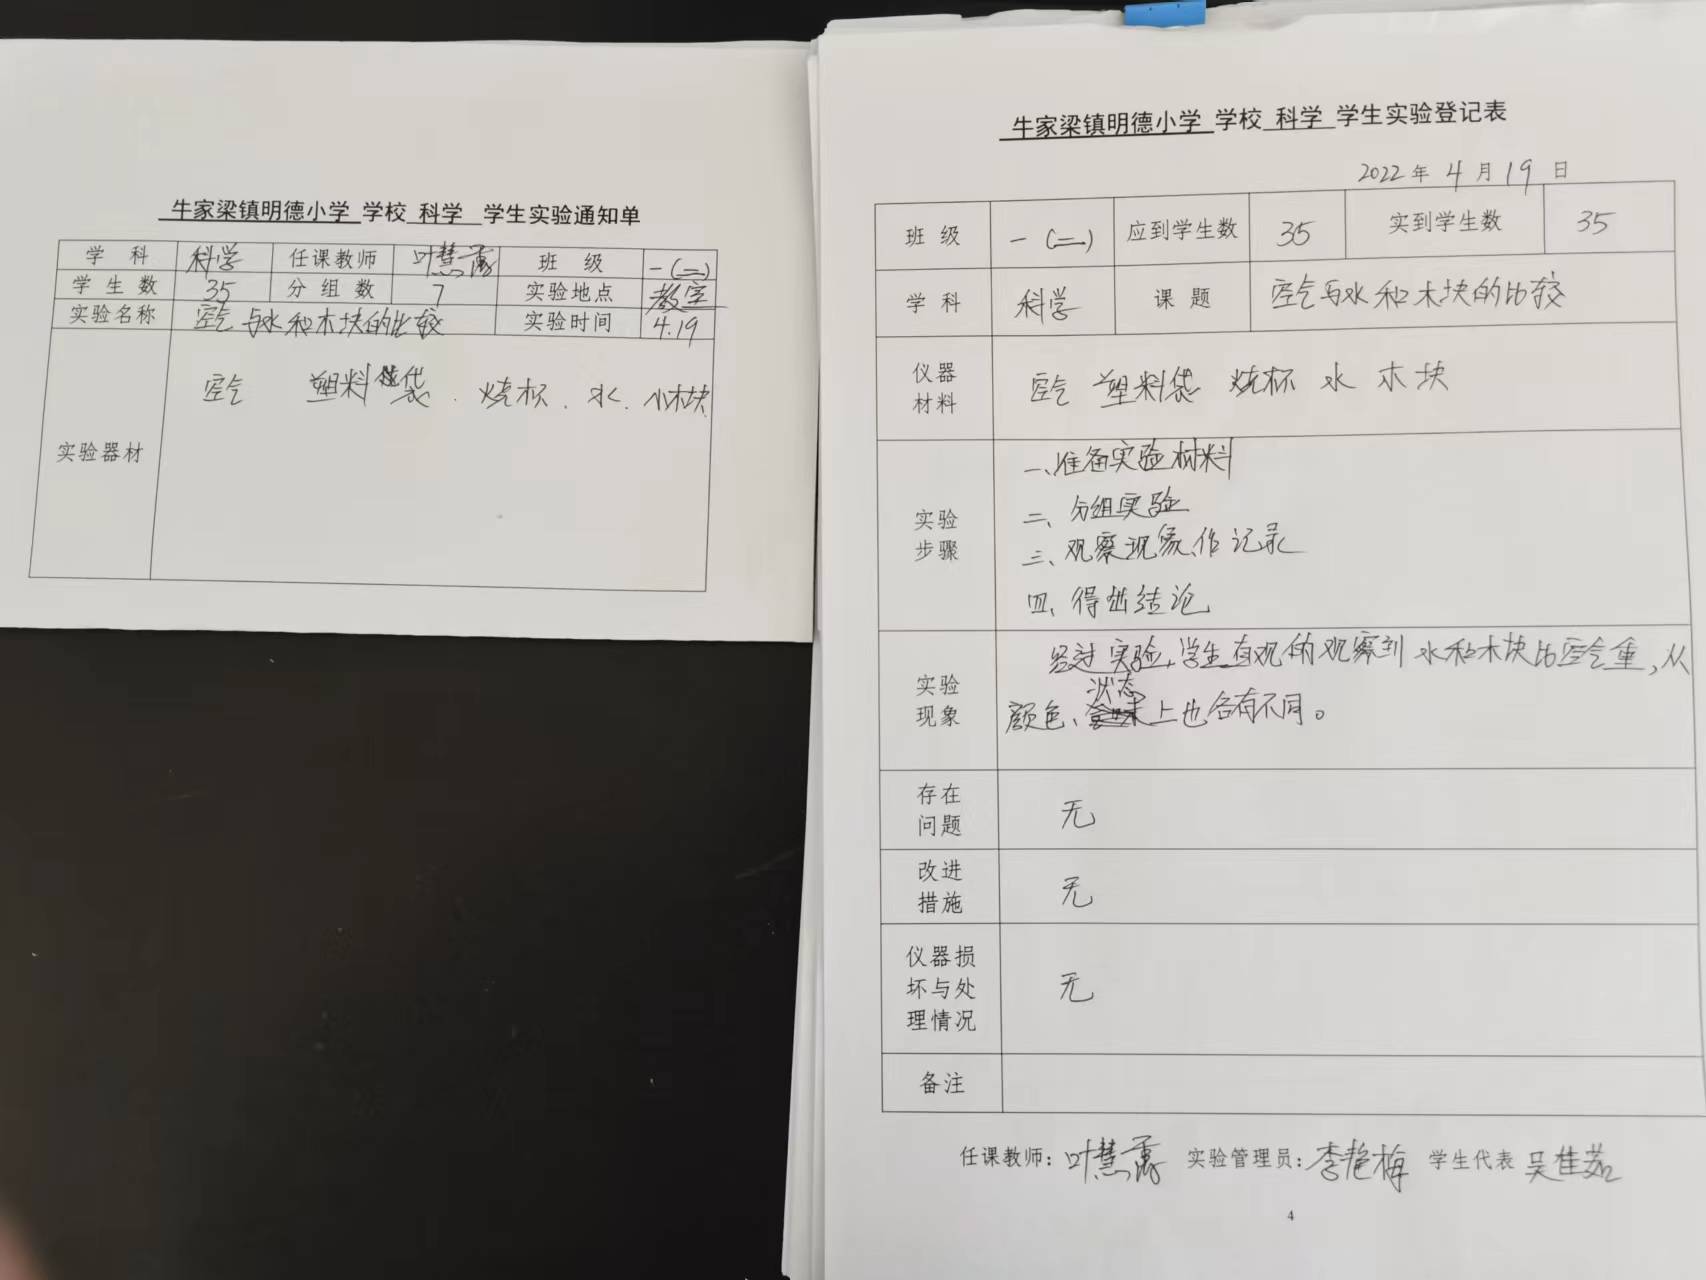 牛家梁镇明德小学 学校 科学 学生实验通知单
学 科 科学 任课教师 叶慧 班 级 一(二)
学生数 35 分组数 7 实验地点 教室
实验名称 空气与水和木块的比较 实验时间 4.19
实验器材 空气 塑料袋. 烧杯. 水. 小木块.
牛家梁镇明德小学 学校 科学 学生实验登记表
2022年 4 月 19 日
班 级 一(二) 应到学生数 35 实到学生数 35
学 科 科学 课 题 空气与水和木块的比较
仪器
材料
空气 塑料袋 烧杯 水 木块
实验
步骤
一、准备实验材料
二、分组实验
三、观察现象、作记录
四、得出结论
实验
现象
经过实验,学生直观的观察到水和木块比空气重,从
颜色、状态上也含有不同。
存在
问题
无
改进
措施
无
仪器损
坏与处
理情况
无
备注
任课教师: 叶慧 实验管理员: 李艳梅 学生代表 吴佳茹
4